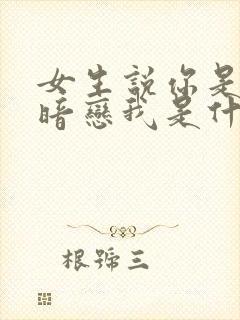 女生說你是
暗戀我是什
根號三